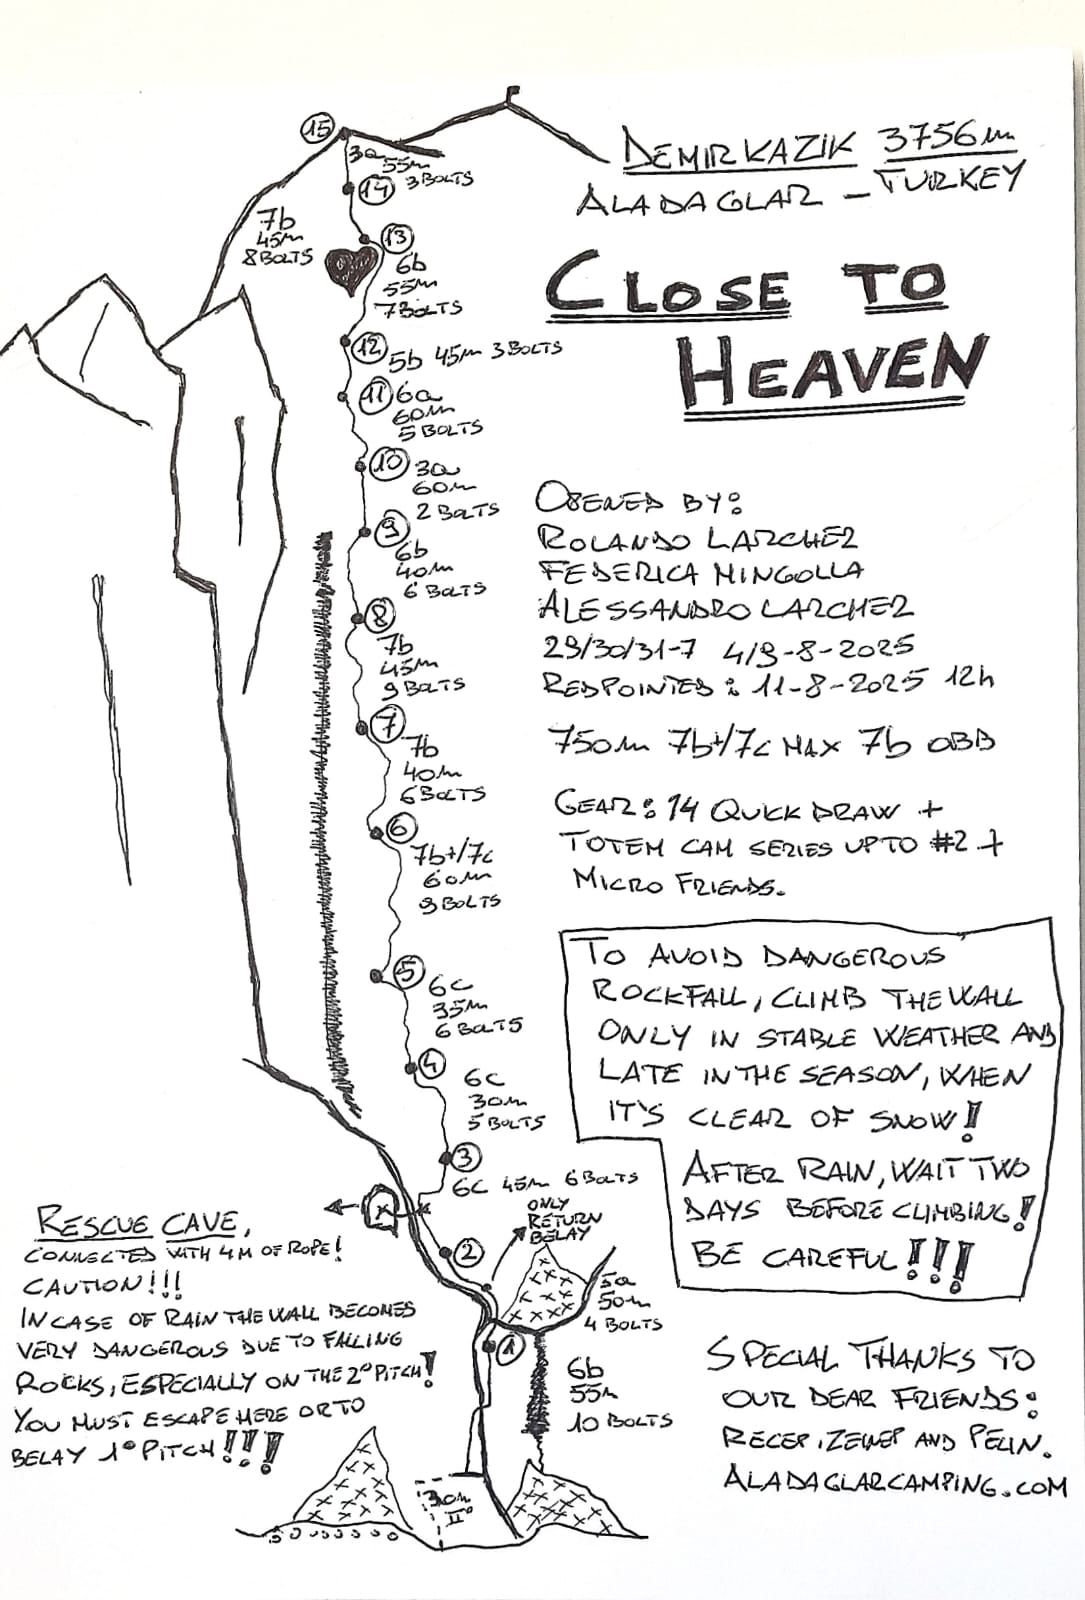 DEMIRKAZIK 3756m
ALADAGLAR - TURKEY
CLOSE TO
HEAVEN
15
3a
55m
3 BOLTS
14
7b
45m
8 BOLTS
13
6b
55m
7 BOLTS
12
5b 45m 3 BOLTS
11
6a
60m
5 BOLTS
10
3a
60m
2 BOLTS
9
6b
40m
6 BOLTS
8
7b
45m
9 BOLTS
7
7b
40m
6 BOLTS
6
7b+/7c
60m
9 BOLTS
5
6c
35m
6 BOLTS
4
6c
30m
5 BOLTS
3
6c 45m 6 BOLTS
ONLY
RETURN
BELAY
2
5a
50m
4 BOLTS
1
6b
55m
10 BOLTS
30m
II°
OPENED BY:
ROLANDO LARCHER
FEDERICA MINGOLLA
ALESSANDRO LARCHER
29/30/31-7 4/9-8-2025
REDPOINTED: 11-8-2025 12h
750m 7b+/7c MAX 7b OBB
GEAR: 14 QUICK DRAW +
TOTEM CAM SERIES UP TO #2 +
MICRO FRIENDS.
TO AVOID DANGEROUS
ROCKFALL, CLIMB THE WALL
ONLY IN STABLE WEATHER AND
LATE IN THE SEASON, WHEN
IT'S CLEAR OF SNOW!
AFTER RAIN, WAIT TWO
DAYS BEFORE CLIMBING!
BE CAREFUL!!!
RESCUE CAVE,
CONNECTED WITH 4M OF ROPE!
CAUTION!!!
IN CASE OF RAIN THE WALL BECOMES
VERY DANGEROUS DUE TO FALLING
ROCKS, ESPECIALLY ON THE 2° PITCH!
YOU MUST ESCAPE HERE OR TO
BELAY 1° PITCH!!!
SPECIAL THANKS TO
OUR DEAR FRIENDS:
RECEP, ZEYNEP AND PELIN.
ALADAGLARCAMPING.COM